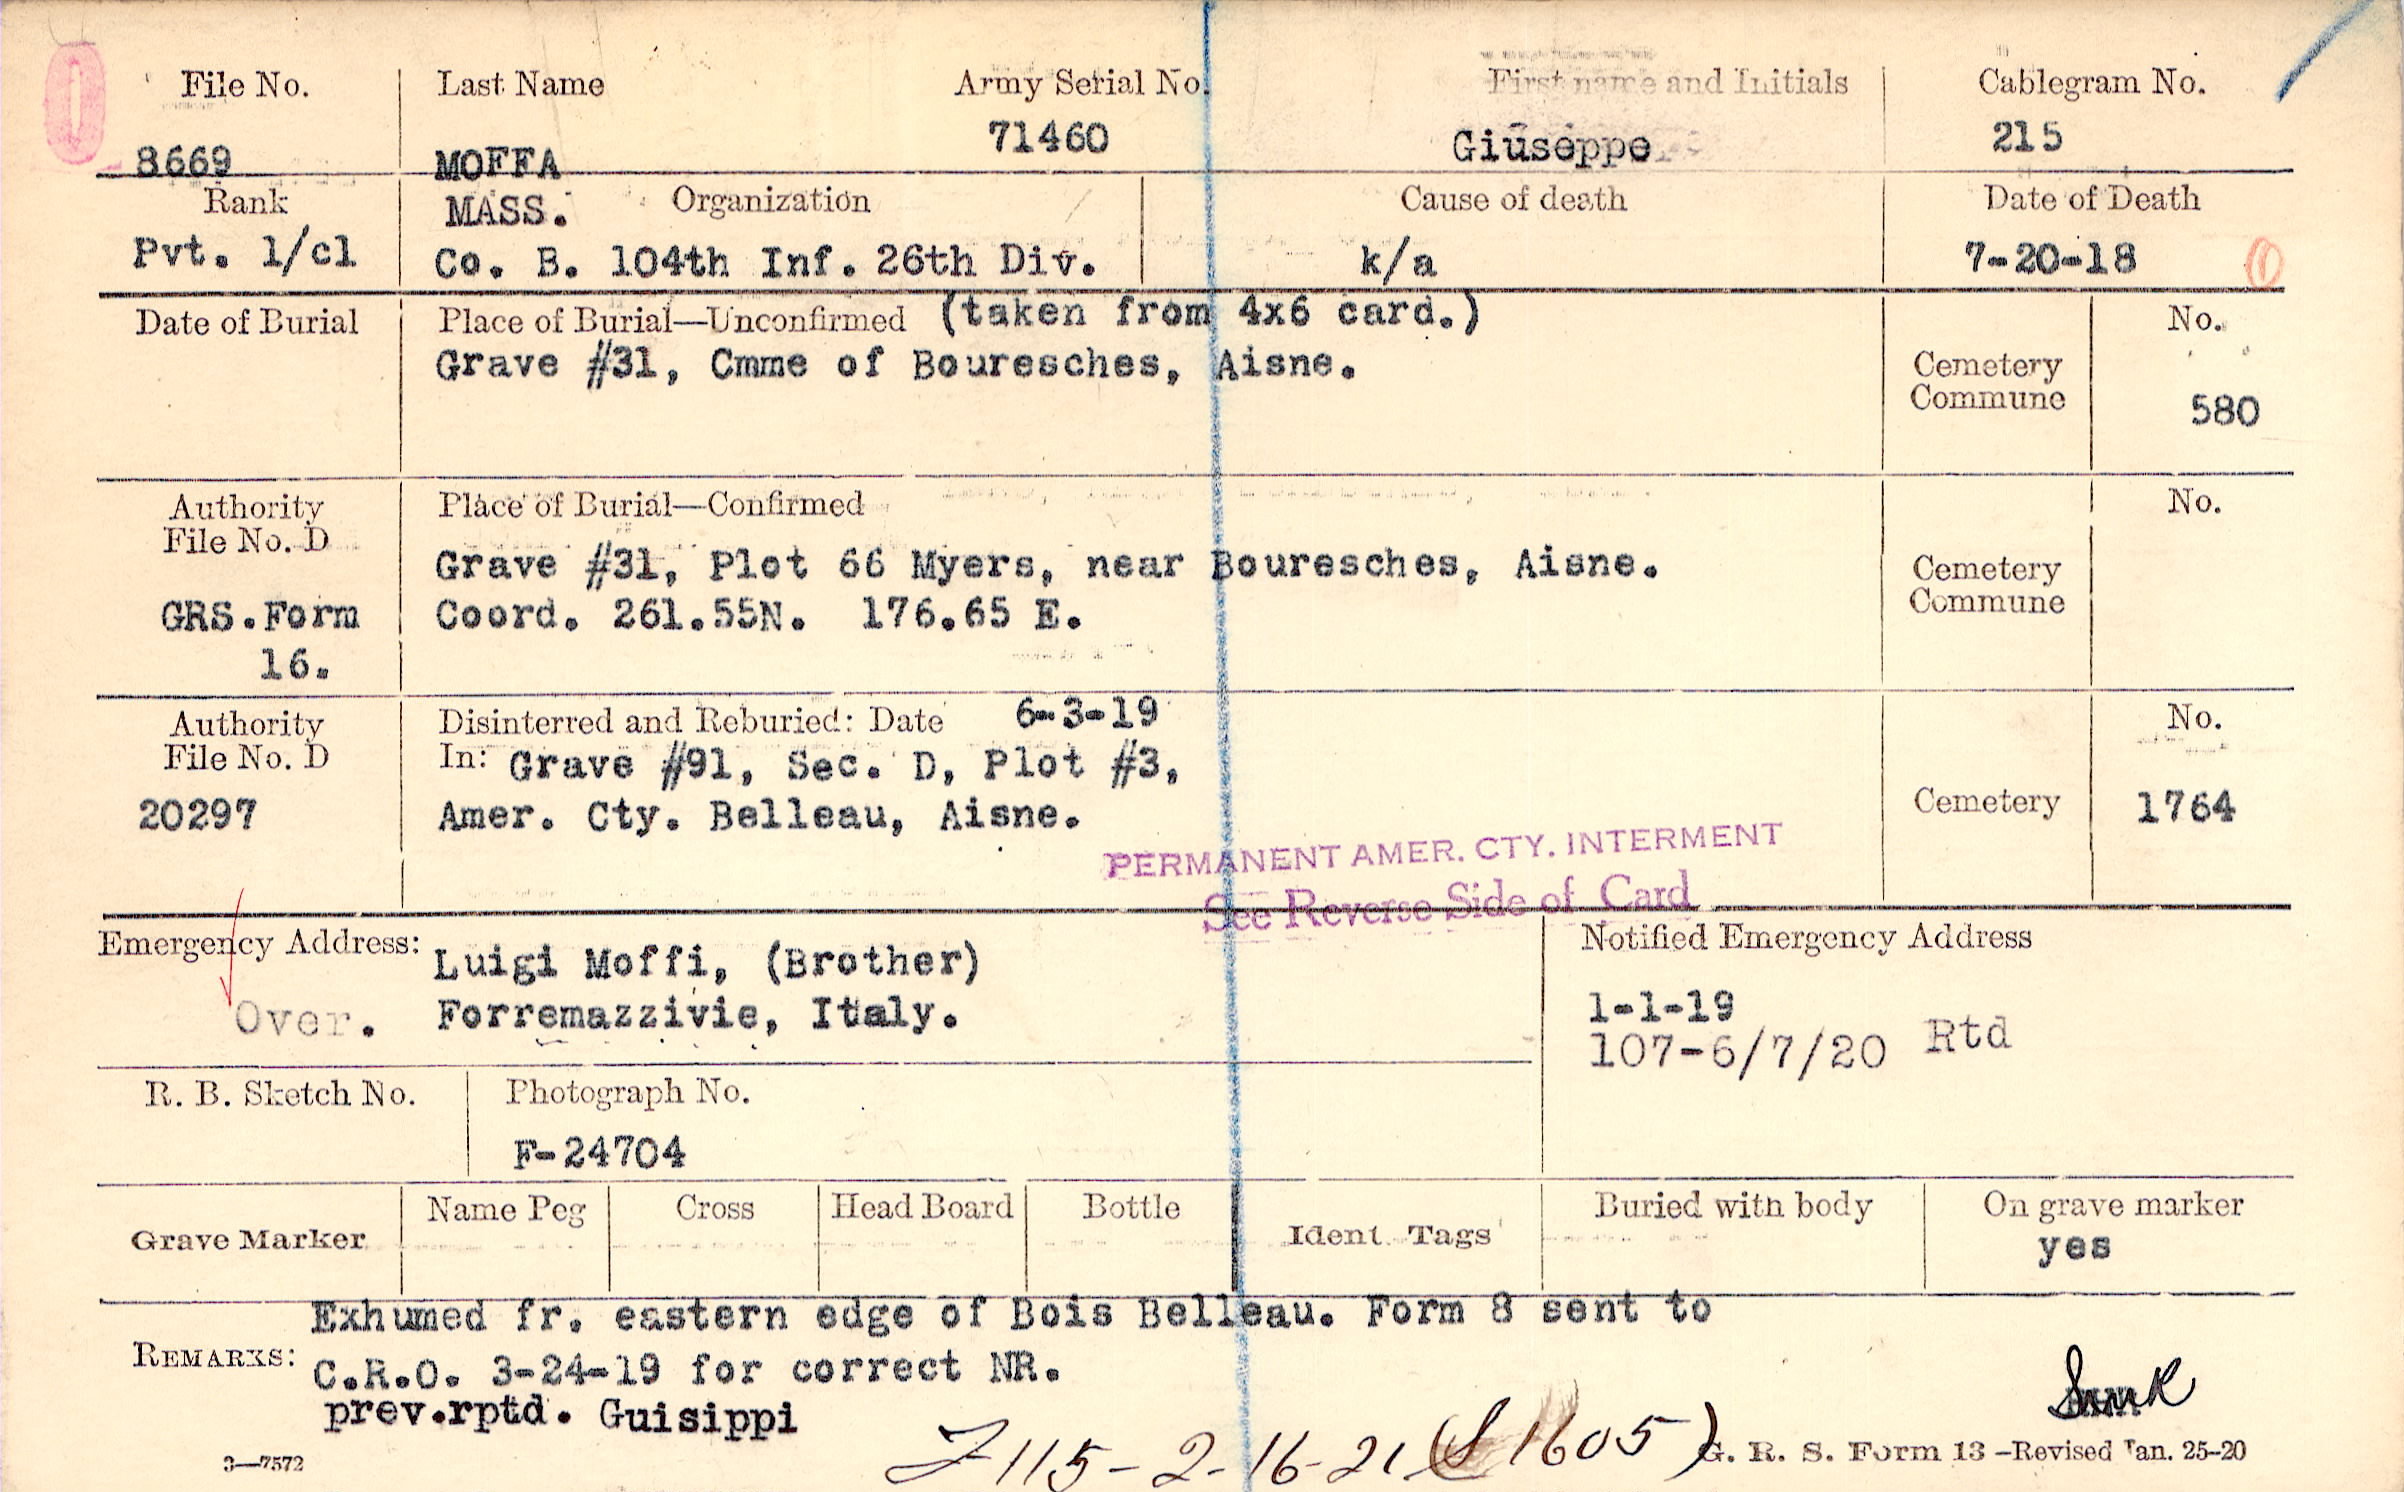 File No. Last Name Army Serial No. First name and Initials Cablegram No.
8669 MOFFA 71460 Giuseppe 215
Rank MASS. Organization Cause of death Date of Death
Pvt. 1/cl Co. B. 104th Inf. 26th Div. k/a 7-20-18
Date of Burial Place of Burial—Unconfirmed (taken from 4x6 card.) No.
Grave #31, Cmme of Bouresches, Aisne. Cemetery
Commune 580
Authority Place of Burial—Confirmed No.
File No. D
Grave #31, Plot 66 Myers, near Bouresches, Aisne. Cemetery
GRS.Form Coord. 261.55N. 176.65 E. Commune
16.
Authority Disinterred and Reburied: Date 6-3-19 No.
File No. D In: Grave #91, Sec. D, Plot #3,
20297 Amer. Cty. Belleau, Aisne. Cemetery 1764
PERMANENT AMER. CTY. INTERMENT
See Reverse Side of Card
Emergency Address: Luigi Moffi, (Brother) Notified Emergency Address
Over. Forremazzivie, Italy. 1-1-19
107-6/7/20 Rtd
R. B. Sketch No. Photograph No.
F-24704
Grave Marker Name Peg Cross Head Board Bottle Ident. Tags Buried with body On grave marker
yes
Exhumed fr. eastern edge of Bois Belleau. Form 8 sent to
REMARKS: C.R.O. 3-24-19 for correct NR.
prev.rptd. Guisippi
115-2-16-21 (S 1605)
3—7572 G. R. S. Form 13 —Revised Jan. 25-20